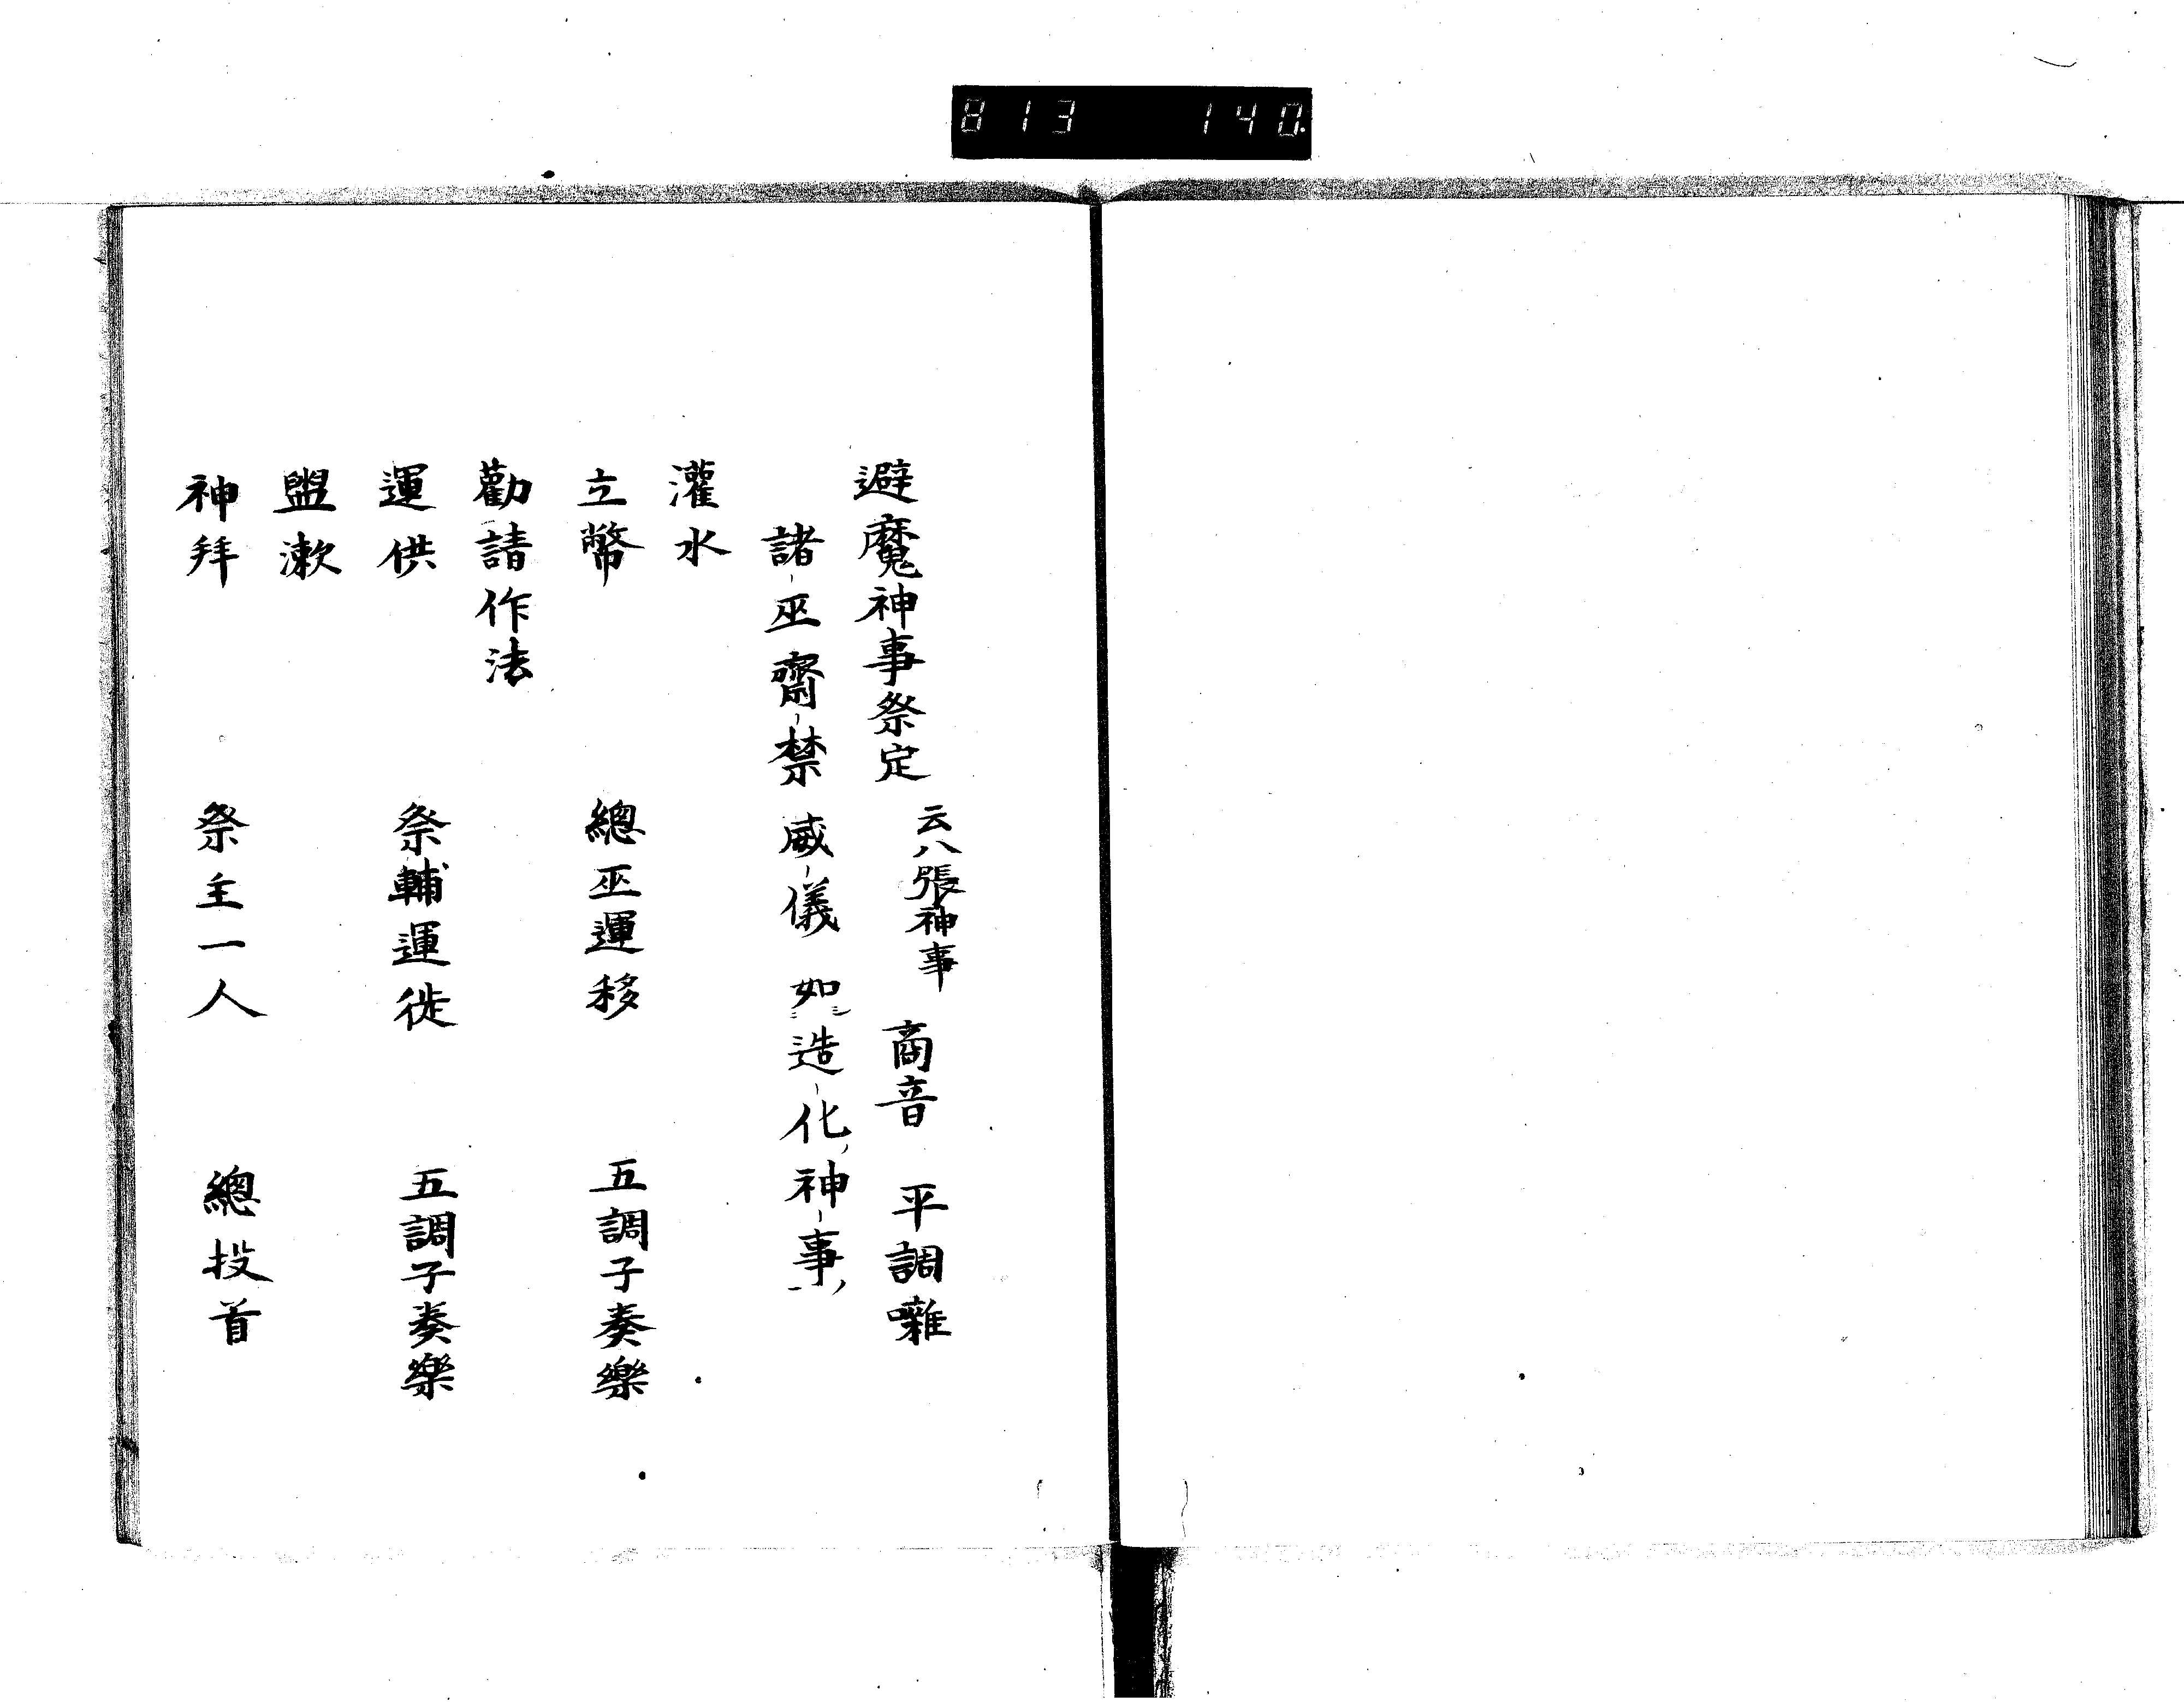 813 140.
避魔神事祭定 云八張神事 商音 平調囃
諸巫齋禁 威儀 如造化神事
灌水
立幣 總巫運移 五調子奏樂
勸請作法
運供 祭輔運徙 五調子奏樂
盥漱
神拜 祭主一人 總投首